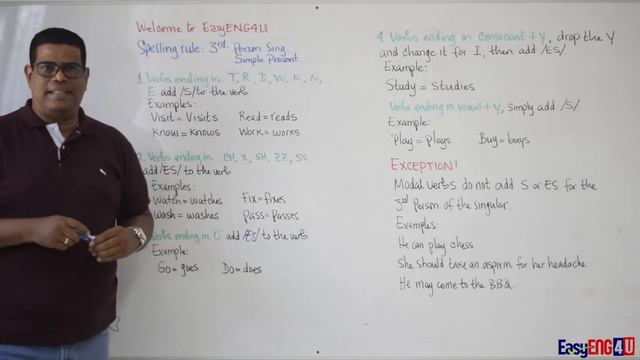 Welcome to EasyENG4U
Spelling rule: 3rd Person Sing
Simple Present
1. Verbs ending in: T, R, D, W, K, N,
E add /S/ to the verb.
Examples:
Visit = Visits Read = reads
Know = Knows Work = works
2. Verbs ending in: CH, X, SH, ZZ, SS
add /ES/ to the verb
Examples
Watch = watches Fix = fixes
Wash = washes Pass = Passes
Verbs ending in O add /ES/ to the verb
Example:
Go = goes Do = does
4. Verbs ending in consonant + Y, drop the Y
and change it for I, then add /ES/
Example:
Study = Studies
Verbs ending in vowel + Y, simply add /S/
Example:
Play = Plays Buy = buys
EXCEPTION!
Modal verbs do not add S or ES for the
3rd Person of the singular.
Examples:
He can play chess.
She should take an aspirin for her headache.
He may come to the BBQ.
EasyENG4U